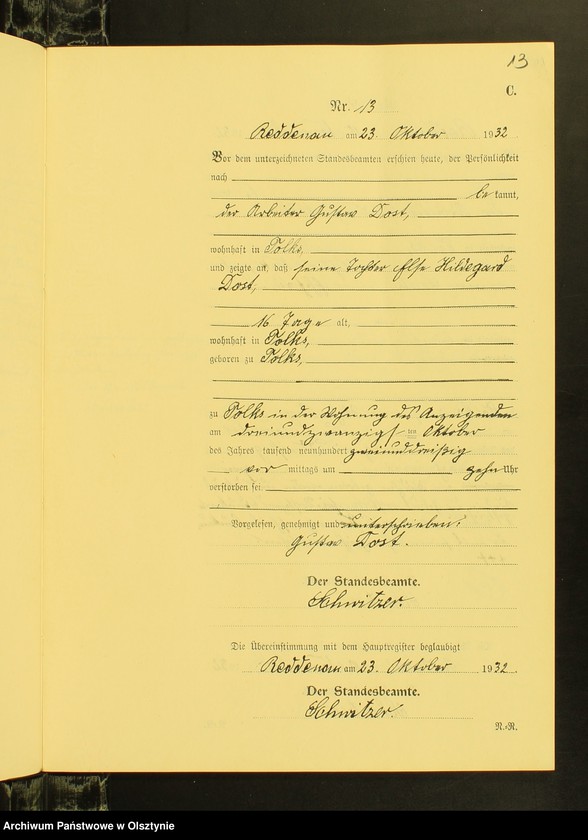 13
C.
Nr. 13
Reddenau am 23. Oktober 1932
Vor dem unterzeichneten Standesbeamten erschien heute, der Persönlichkeit
nach
be kannt,
der Arbeiter Gustav Dost,
wohnhaft in Tolks,
und zeigte an, daß seine Tochter Else Hildegard
Dost,
16 Tage alt,
wohnhaft in Tolks,
geboren zu Tolks,
zu Tolks in der Wohnung des Anzeigenden
am dreiundzwanzigsten Oktober
des Jahres tausend neunhundert zweiunddreißig
vor mittags um zehn Uhr
verstorben sei.
Vorgelesen, genehmigt und unterschrieben.
Gustav Dost.
Der Standesbeamte.
Schwitzer.
Die Übereinstimmung mit dem Hauptregister beglaubigt
Reddenau am 23. Oktober 1932.
Der Standesbeamte.
Schwitzer.
N.=R.
Archiwum Państwowe w Olsztynie